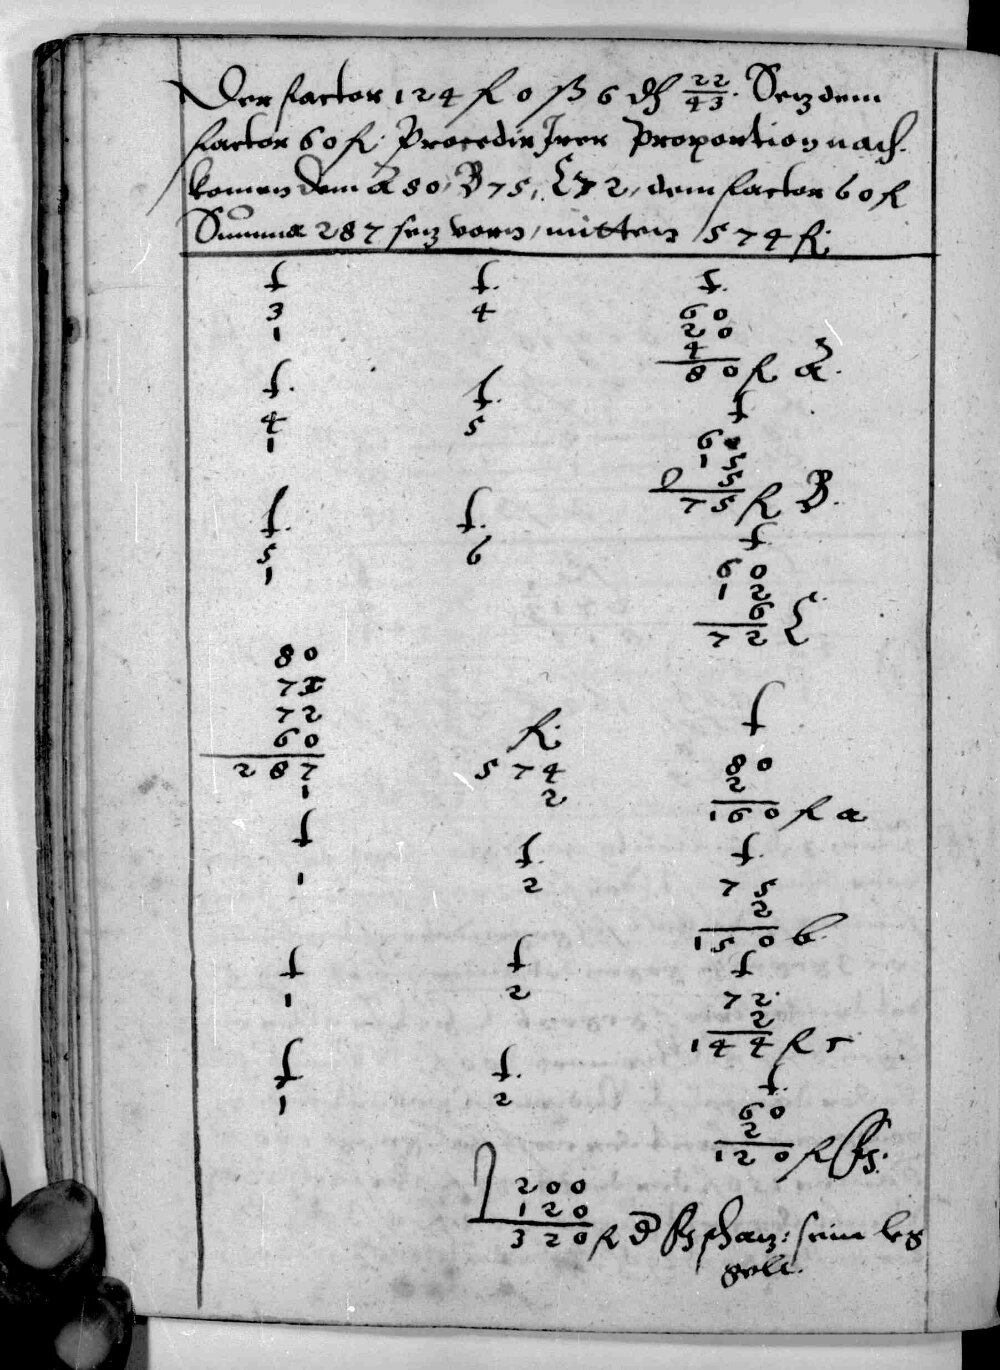 Der factor 124 fl 0 ß 6 ₰ 22/43. Setz dem
factor 60 fl. Procedir Irer Proportion nach.
komen dem A 80, B 75, C 72, dem factor 60 fl
Summa 287 setz vorn, mitten 574 fl.
f f. f.
3 4 60
1 20
4
80 fl A.
f. f. f
4 5 60
1 15
5
75 fl B.
f. f. f
5 6 60
1 12
6
72 C
80
75
72
60 fl. f
287 574 80
1 2 2
160 fl a
f f. f.
1 2 75
2
150 b.
f f f
1 2 72.
2
144 fl c
f f. f.
1 2 60
2
120 fl
200
120
320 fl sein leg
gelt.